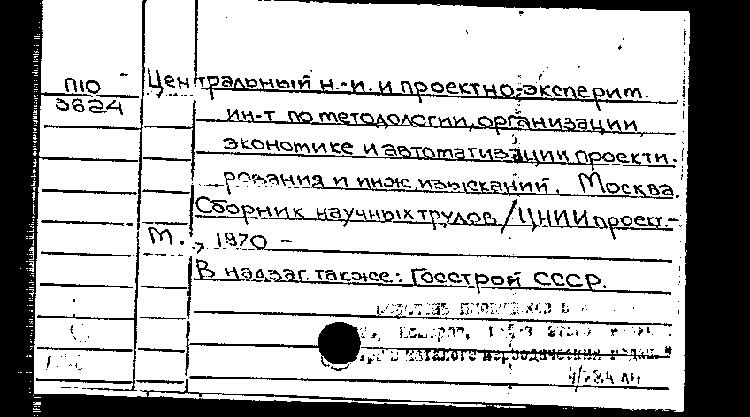 П10 Центральный н.-и. и проектно-эксперим.
3624 ин-т по методологии, организации,
экономике и автоматизации проекти-
рования и инж. изысканий. Москва.
Сборник научных трудов / ЦНИИпроект.-
М., 1970 -
В надзаг. также: Госстрой СССР.
в каталоге периодических издан."
4/284 лн